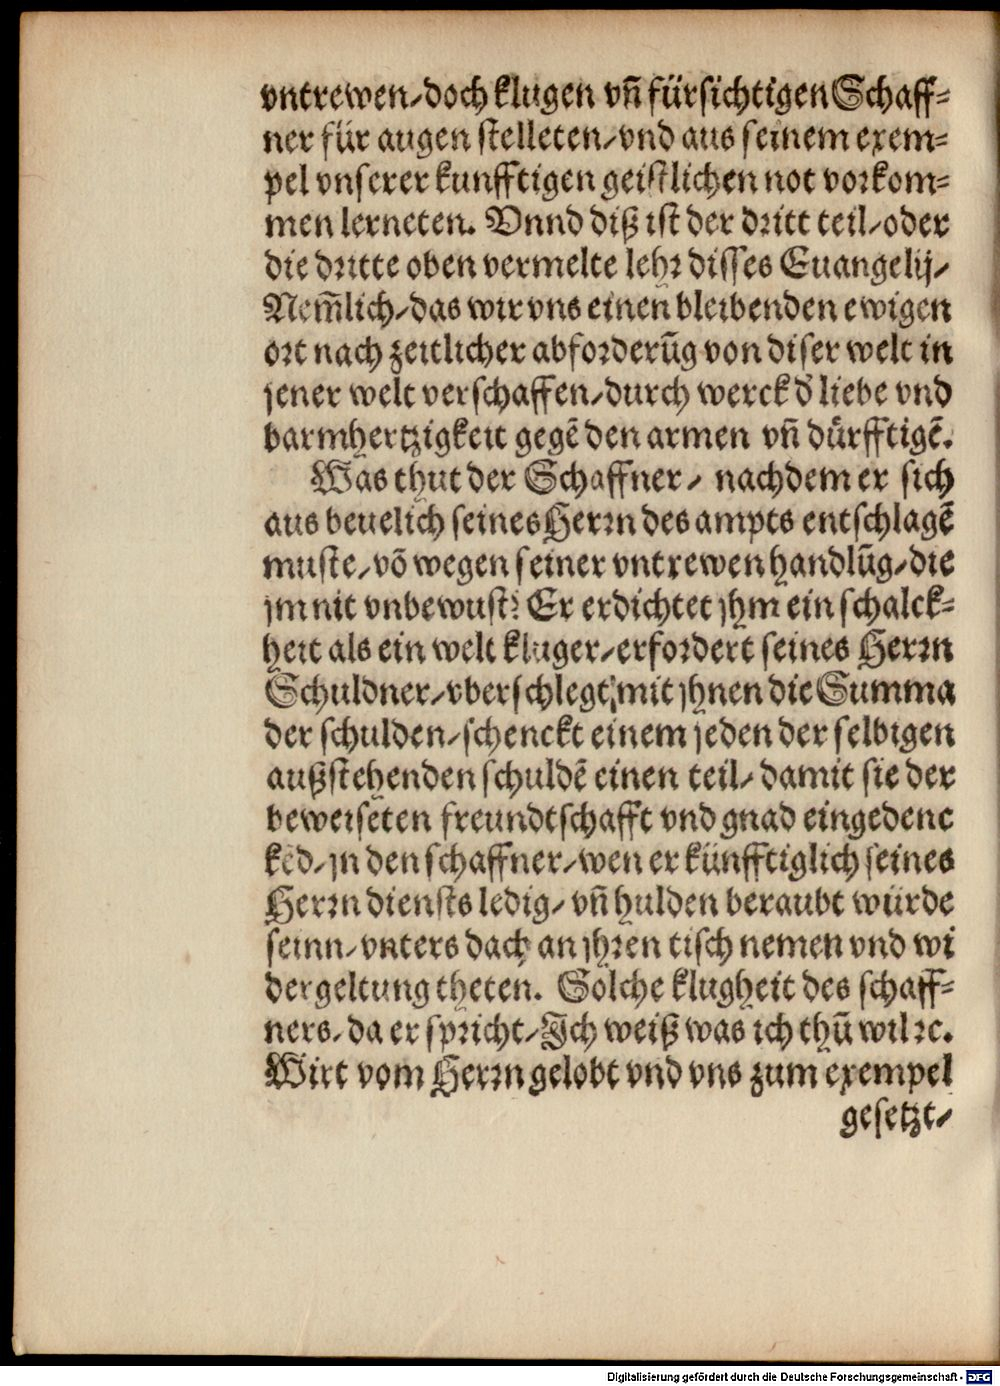 vntrewen/doch klugen vñ fürsichtigen Schaff-
ner für augen stelleten/vnd aus seinem exem-
pel vnserer kunfftigen geistlichen not vorkom-
men lerneten. Vnnd diß ist der dritt teil/oder
die dritte oben vermelte lehr disses Euangelij/
Nem̃lich/das wir vns einen bleibenden ewigen
ort nach zeitlicher abforderũg von diser welt in
jener welt verschaffen/durch werck d̕ liebe vnd
barmhertzigkeit gegẽ den armen vñ dürfftigẽ.
Was thut der Schaffner/ nachdem er sich
aus beuelich seines Herrn des ampts entschlagẽ
muste/võ wegen seiner vntrewen handlũg/die
jm nit vnbewust? Er erdichtet jhm ein schalck-
heit als ein welt kluger/erfordert seines Herrn
Schuldner/vberschlegt mit jhnen die Summa
der schulden/schenckt einem jeden der selbigen
außstehenden schuldẽ einen teil/ damit sie der
beweiseten freundtschafft vnd gnad eingedenc
kẽd/jn den schaffner/wen er künfftiglich seines
Herrn diensts ledig/ vñ hulden beraubt würde
seinn/vnters dach an jhren tisch nemen vnd wi
dergeltung theten. Solche klugheit des schaff-
ners/da er spricht/Ich weiß was ich thũ wil ꝛc.
Wirt vom Herrn gelobt vnd vns zum exempel
gesetzt/
Digitalisierung gefördert durch die Deutsche Forschungsgemeinschaft - DFG